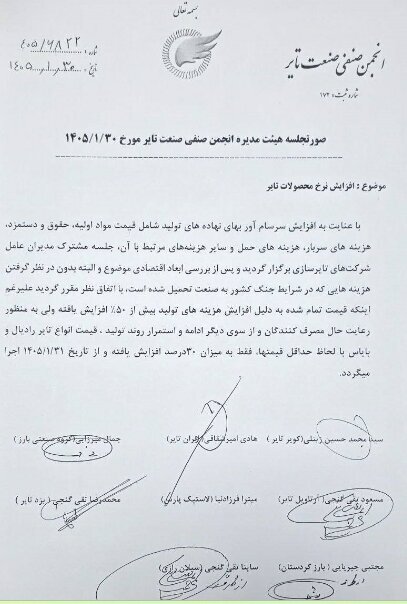 بسمه تعالی
انجمن صنفی صنعت تایر
شماره ثبت: ۱۷۲
شماره: ۴۰۵/۶۸۲۲
تاریخ: ۱۴۰۵/۱/۳۰
صورتجلسه هیئت مدیره انجمن صنفی صنعت تایر مورخ ۱۴۰۵/۱/۳۰
موضوع : افزایش نرخ محصولات تایر
با عنایت به افزایش سرسام آور بهای نهاده های تولید شامل قیمت مواد اولیه، حقوق و دستمزد،
هزینه های سربار، هزینه های حمل و سایر هزینه‌های مرتبط با آن، جلسه مشترک مدیران عامل
شرکت‌های تایرسازی برگزار گردید و پس از بررسی ابعاد اقتصادی موضوع و البته بدون در نظر گرفتن
هزینه هایی که در شرایط جنگ کشور به صنعت تحمیل شده است، با اتفاق نظر مقرر گردید علیرغم
اینکه قیمت تمام شده به دلیل افزایش هزینه های تولید بیش از ۵۰٪ افزایش یافته ولی به منظور
رعایت حال مصرف کنندگان و از سوی دیگر ادامه و استمرار روند تولید ، قیمت انواع تایر رادیال و
بایاس با لحاظ حداقل قیمتها، فقط به میزان ۳۰درصد افزایش یافته و از تاریخ ۱۴۰۵/۱/۳۱ اجرا
میگردد.
سینا محمد حسین زینلی(کویر تایر) هادی امیرسقاقی(ایران تایر) جمال میرزایی(گروه صنعتی بارز)
مسعود نقی گنجی(آرتاویل تایر) میترا فرزادنیا (لاستیک پارس) محمدرضا نقی گنجی( یزد تایر )
مجتبی جیریایی ( بارز کردستان) ساینا نقی گنجی(سبلان رازی)